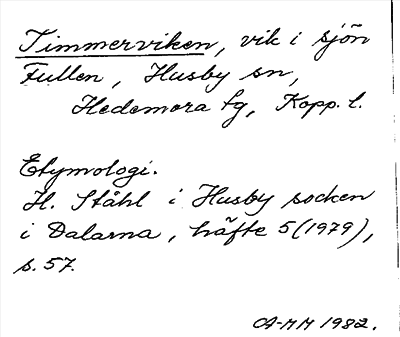 Timmerviken, vik i sjön
Fullen, Husby sn,
Hedemora tg, Kopp. l.
Etymologi.
H. Ståhl i Husby socken
i Dalarna, häfte 5(1979),
s. 57.
CA-MM 1982.